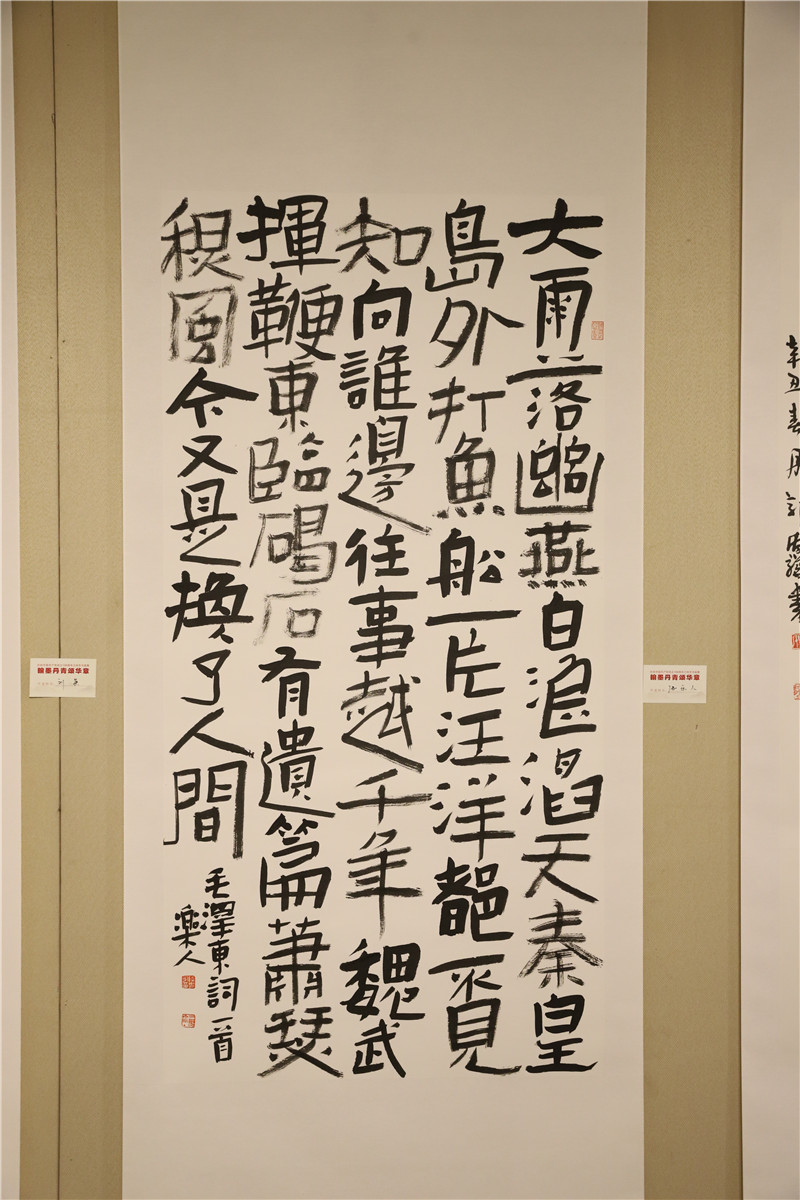 大雨落幽燕白浪滔天秦皇
島外打魚船一片汪洋都不見
知向誰邊往事越千年魏武
揮鞭東臨碣石有遺篇蕭瑟
秋風今又是換了人間
毛澤東詞一首
樂人
翰墨丹青颂华章
翰墨丹青颂华章
辛丑春月